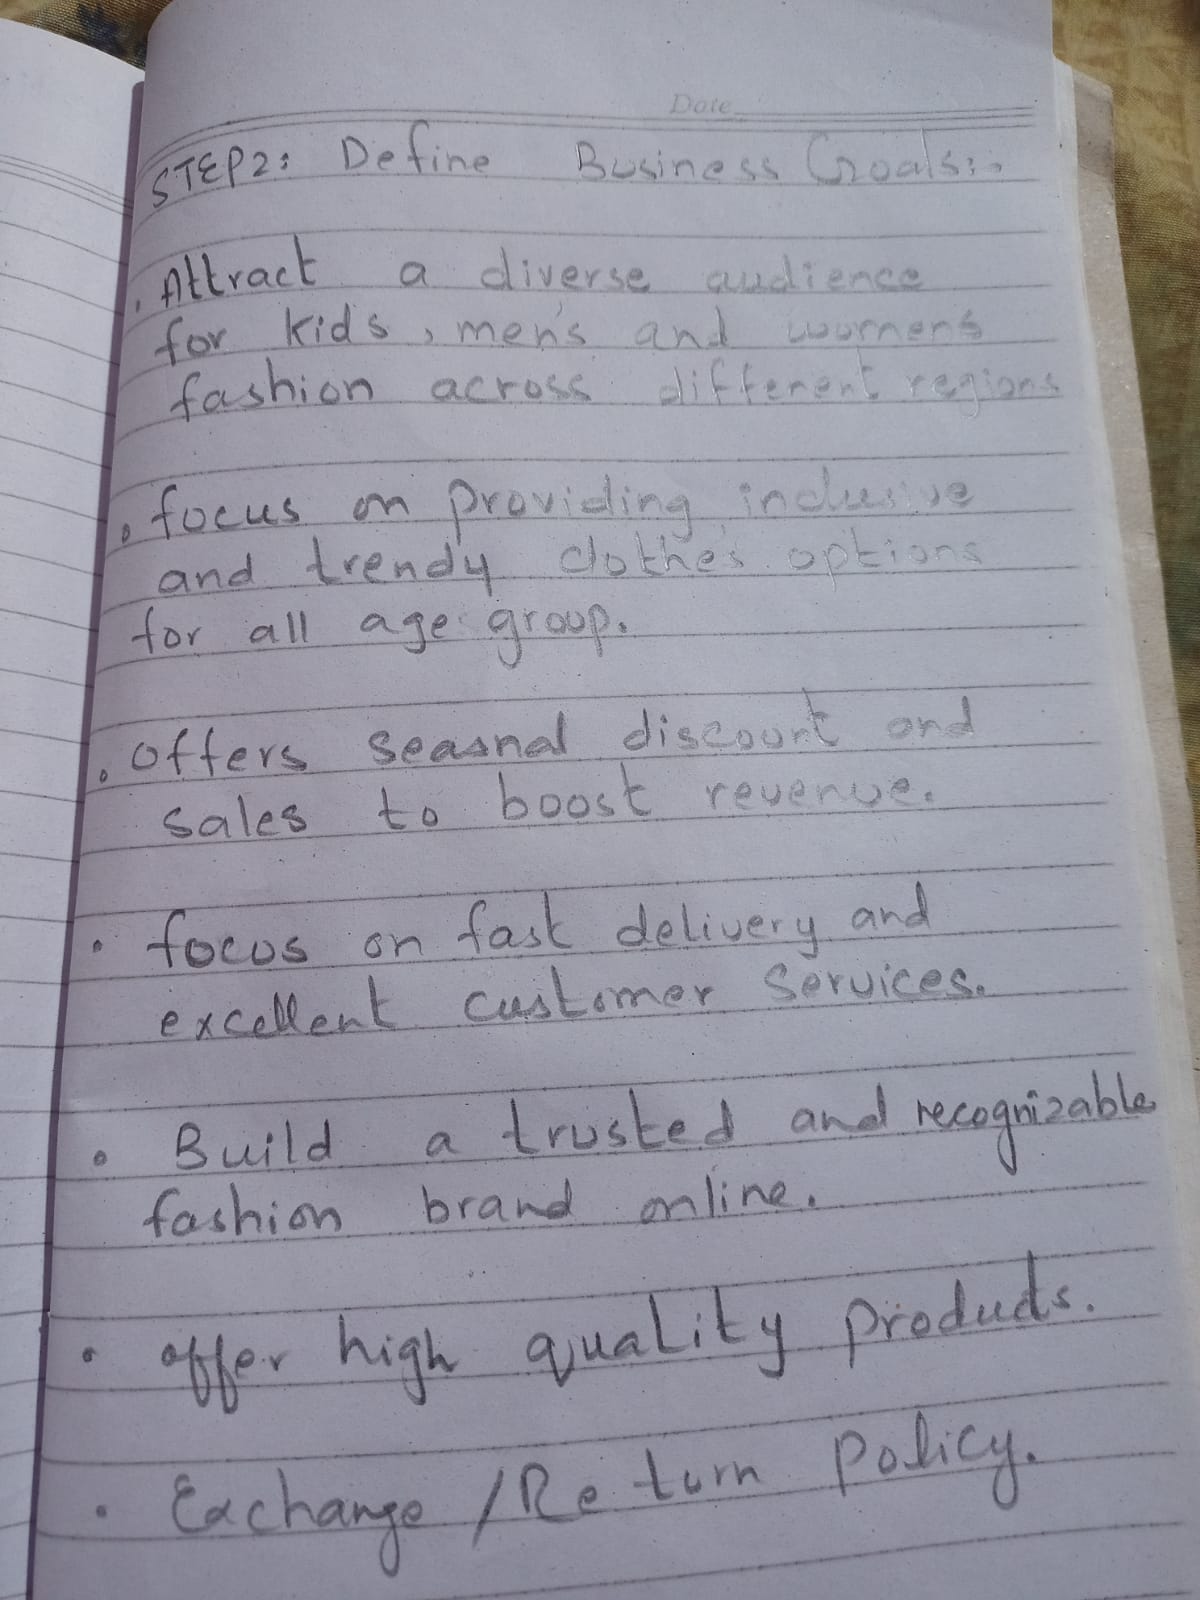 Date
STEP2: Define Business Goals:-
. Attract a diverse audience
for kids, men's and women's
fashion across different regions
. focus on providing inclusive
and trendy clothes options
for all age group.
. offers seasnal discount and
sales to boost revenue.
• focus on fast delivery and
excellent customer services.
• Build a trusted and recognizable
fashion brand online.
• offer high quality products.
• Exchange /Return policy.